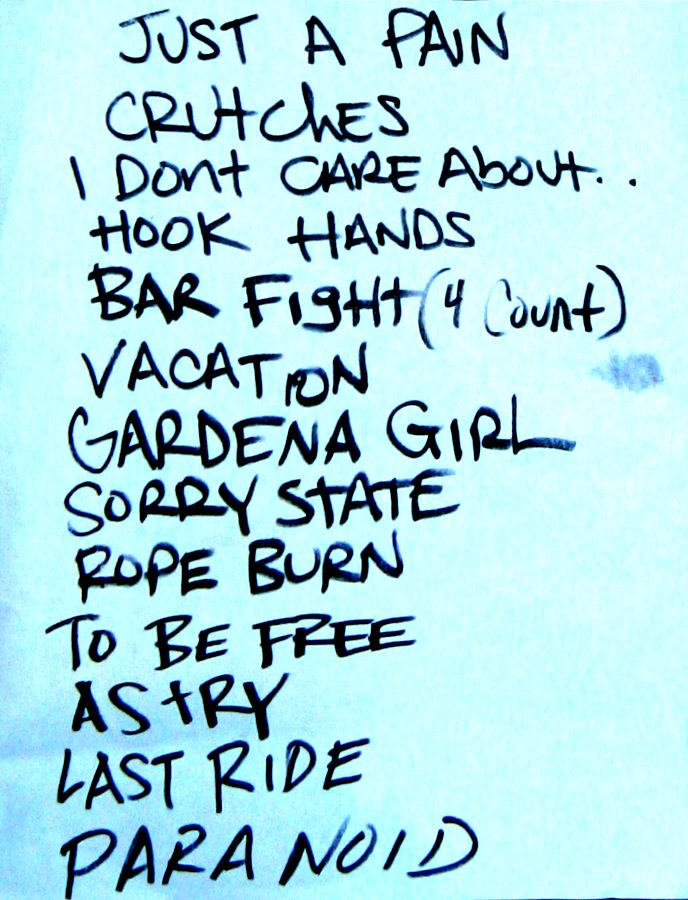 JUST A PAIN
CRUtChES
I Dont CARE About..
HOOK HANDS
BAR FigHt (4 Count)
VACATION
GARDENA GIRL
SORRY StATE
ROPE BURN
To BE FREE
AStRY
LAST RIDE
PARANOID